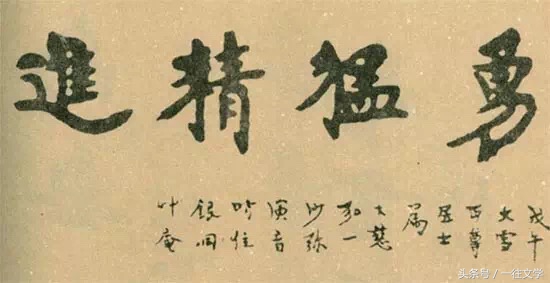 勇猛精進
戊午
大雪
丏尊
居士
属
大慈
弘一
沙弥
演音
时住
銀洞
叶庵
头条号 / 一往文学